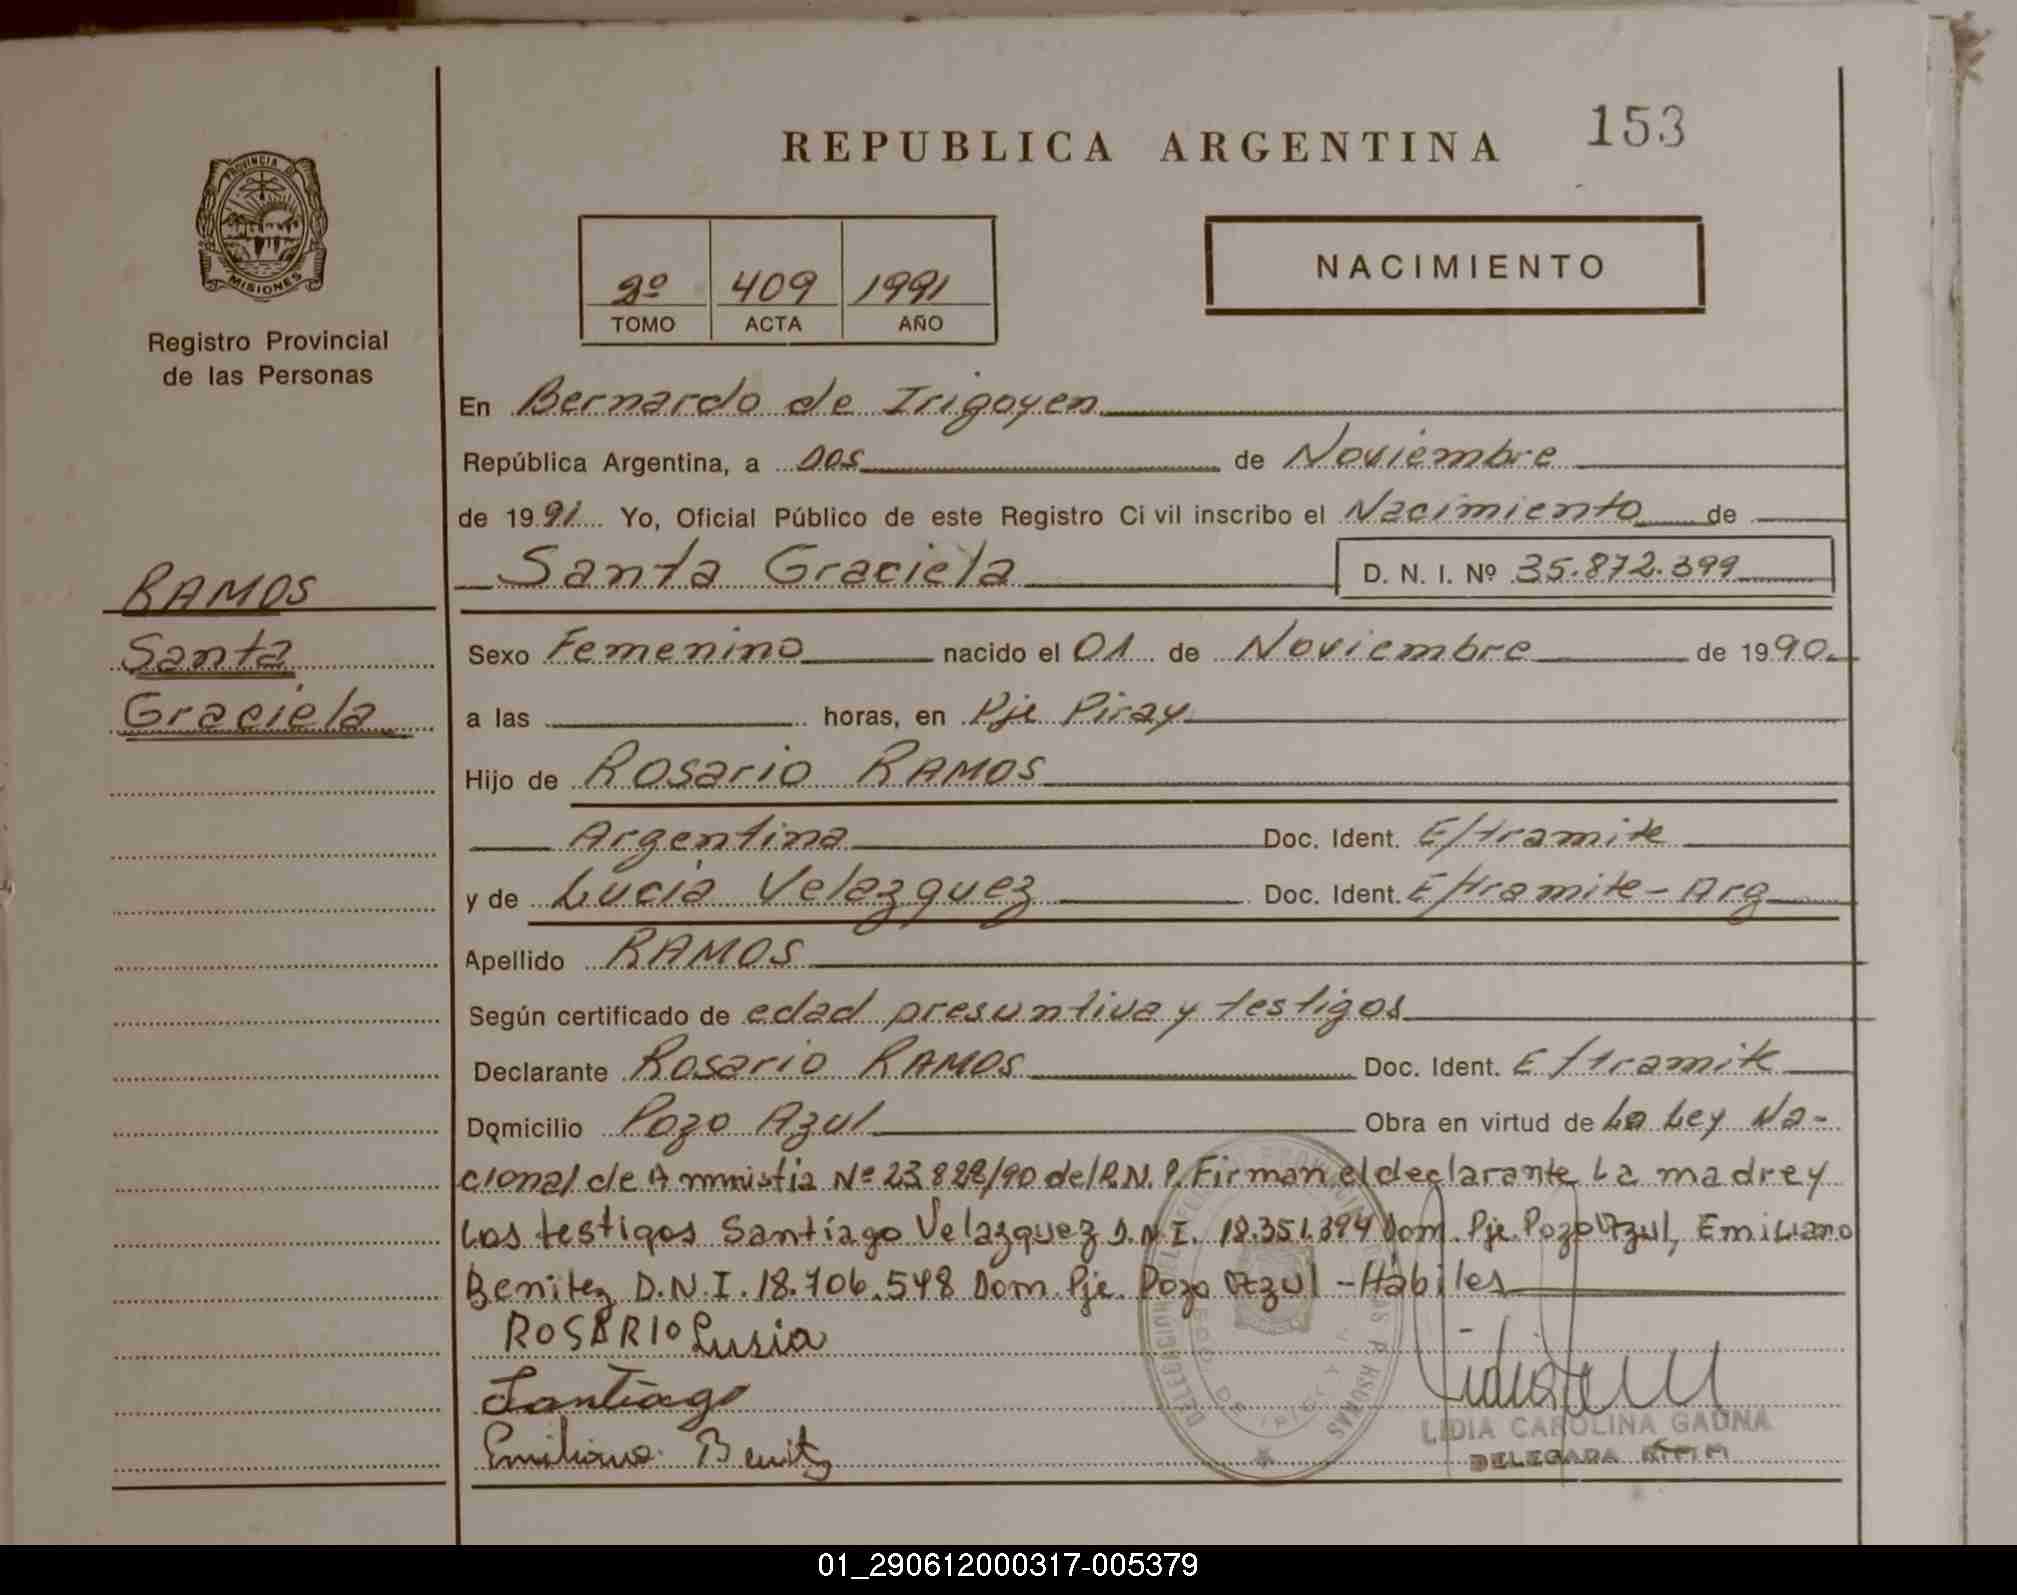 REPUBLICA ARGENTINA
153
PROVINCIA DE
MISIONES
Registro Provincial
de las Personas
2º 409 1991
TOMO ACTA AÑO
NACIMIENTO
En Bernardo de Irigoyen
República Argentina, a Dos de Noviembre
de 1991 Yo, Oficial Público de este Registro Civil inscribo el Nacimiento de
Santa Graciela D. N. I. Nº 35.872.399
RAMOS
Santa
Graciela
Sexo Femenino nacido el 01 de Noviembre de 1990
a las horas, en Pje Piray
Hijo de Rosario RAMOS
Argentina Doc. Ident. E/tramite
y de Lucía Velazquez Doc. Ident. E/tramite - Arg
Apellido RAMOS
Según certificado de edad presuntiva y testigos
Declarante Rosario RAMOS Doc. Ident. E/tramite
Domicilio Pozo Azul Obra en virtud de La Ley Na-
cional de Ammistia Nº 23.828/90 del R.N.P. Firman el declarante La madre y
Los testigos Santiago Velazquez D.N.I. 18.351.394 Dom. Pje. Pozo Azul, Emiliano
Benitez D.N.I. 18.706.548 Dom. Pje. Pozo Azul - Hábiles
ROSARIO Lusia
Santiago
Emiliano Benitz
LIDIA CAROLINA GAUNA
DELEGADA
01_290612000317-005379